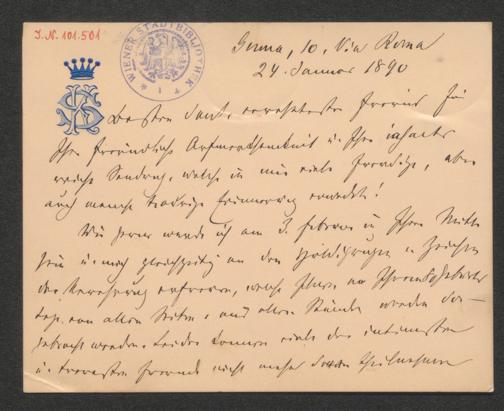 J.N. 101.501
WIENER STADTBIBLIOTHEK
Genua, 10, Via Roma
24. Januar 1890
Besten Dank, verehrtester Freund für
Ihre freundliche Aufmerksamkeit u. Ihre inhalts
reiche Sendung, welche in mir viele freudige, aber
auch manche traurige Erinnerung erweckte!
Wie gerne würde ich am 3. Februar in Ihrer Mitte
sein u. mich gleichzeitig an den Huldigungen u. Zeichen
der Verehrung erfreuen, welche Ihnen an Ihrem Geburts
tag von allen Seiten u. aus allen Ständen werden dar-
gebracht werden. Leider können viele der intimsten
u. treuesten Freunde nicht mehr daran theilnehmen